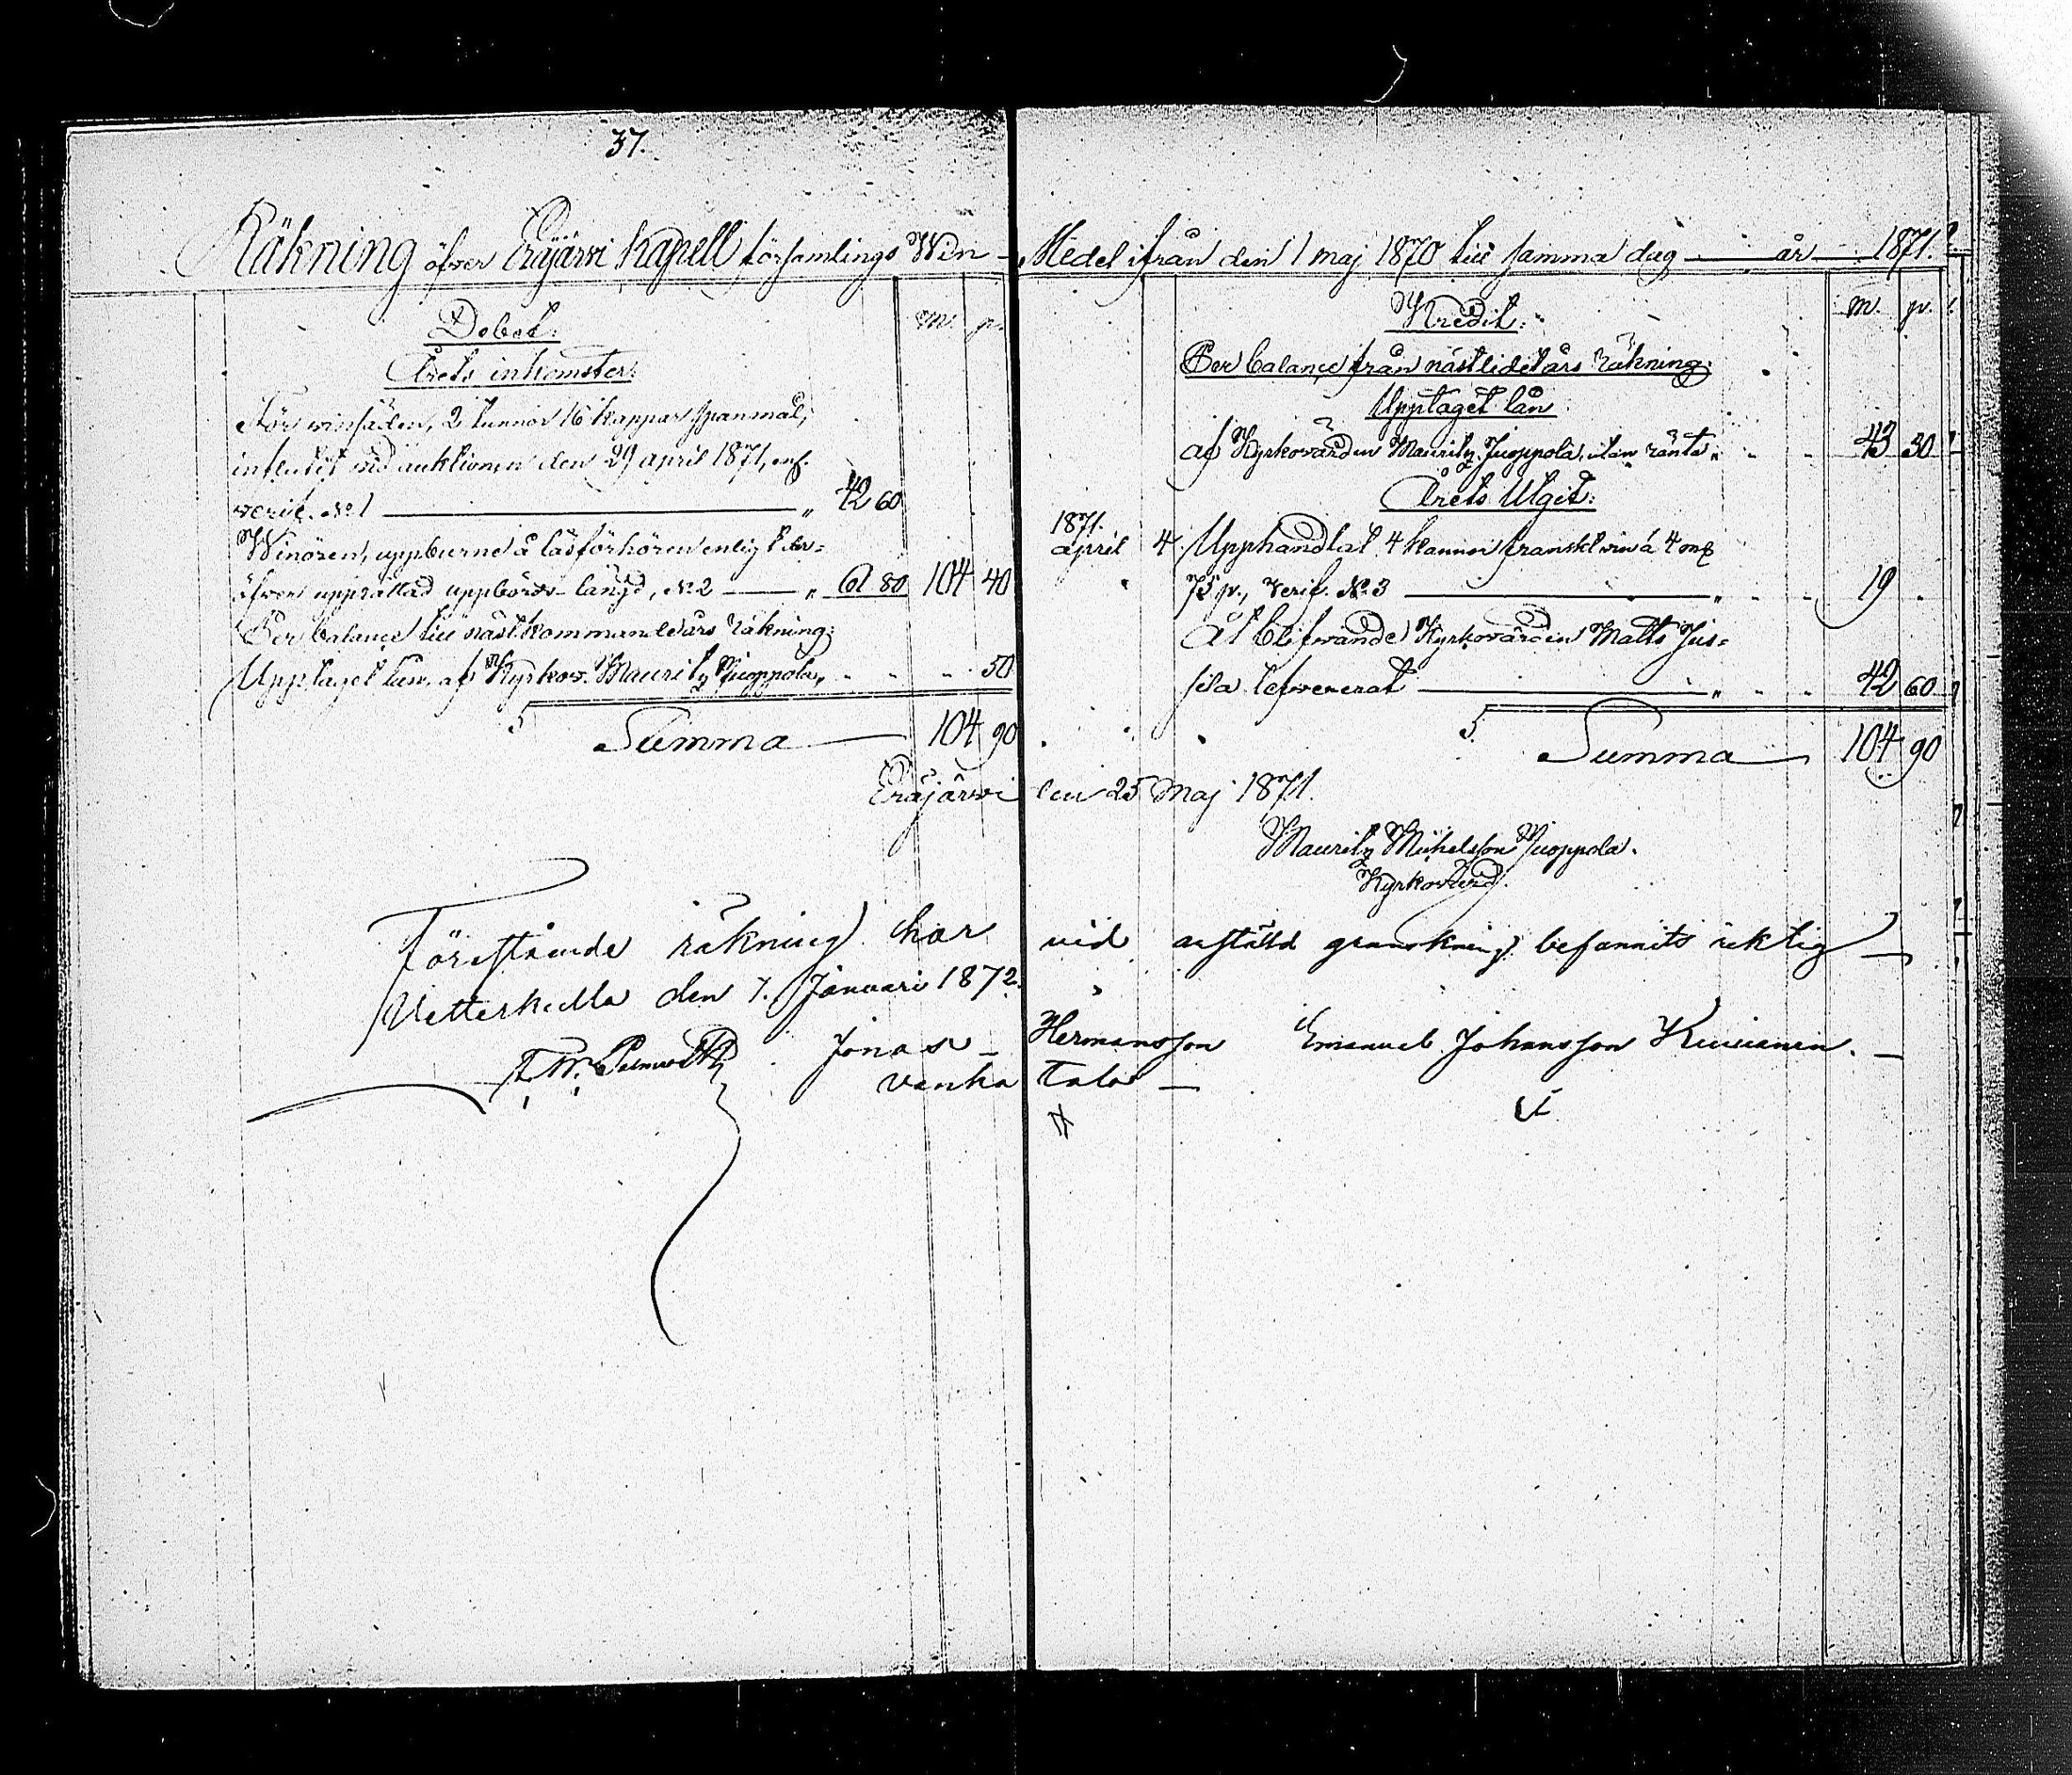 37.
Räkning öfver Eräjärvi Kapell församlings Win-Medel ifrån den 1 maj 1870 till samma dag år 1871.
Debet:
m. p.
Årets inkomster:
För winsäden, 2 tunnor 16 kappar spanmål,
influtit vid auktionen den 29 april 1871, enl.
verif. No 1 " 42 60
Winören, uppburne å läsförhören enligt der-
öfver upprättad uppbörds längd, No 2 " 61 80 104 40
Per balance till nästkommande års räkning:
Upptaget lån af Kyrkov. Mauritz Juoppola, 50
S Summa 104 90
Kredit:
m. p.
Per balance från nästlidet års räkning:
Upptaget lån
af Kyrkovärden Mauritz Juoppola, utan ränta " 43 30
Årets Utgift:
1871.
april 4. Upphandlat 4 kannor franskt win à 4 mk
75 p., verif. No 3 " 19 .
Åt blifwande Kyrkovärden Matts Jus-
sila lefwererat " 42 60
S. Summa 104 90
Eräjärvi den 25 Maj 1871.
Mauritz Michelsson Juoppola.
Kyrkovärd.
Förestående räkning har vid anställd granskning befunnits riktig
Vetterkulla den 7. Januari 1872.
Jonas Hermansson Emanuel Johansson
Vanha Talo